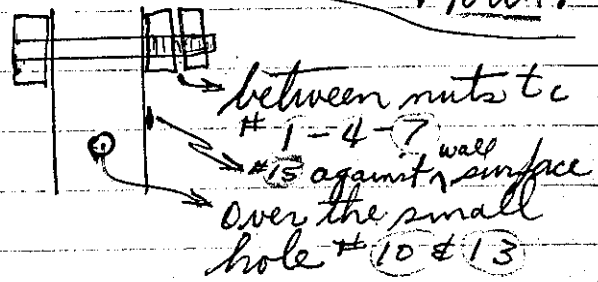 between nuts tc
# 1-4-7
#15 against wall surface
over the small
hole # 10 & 13